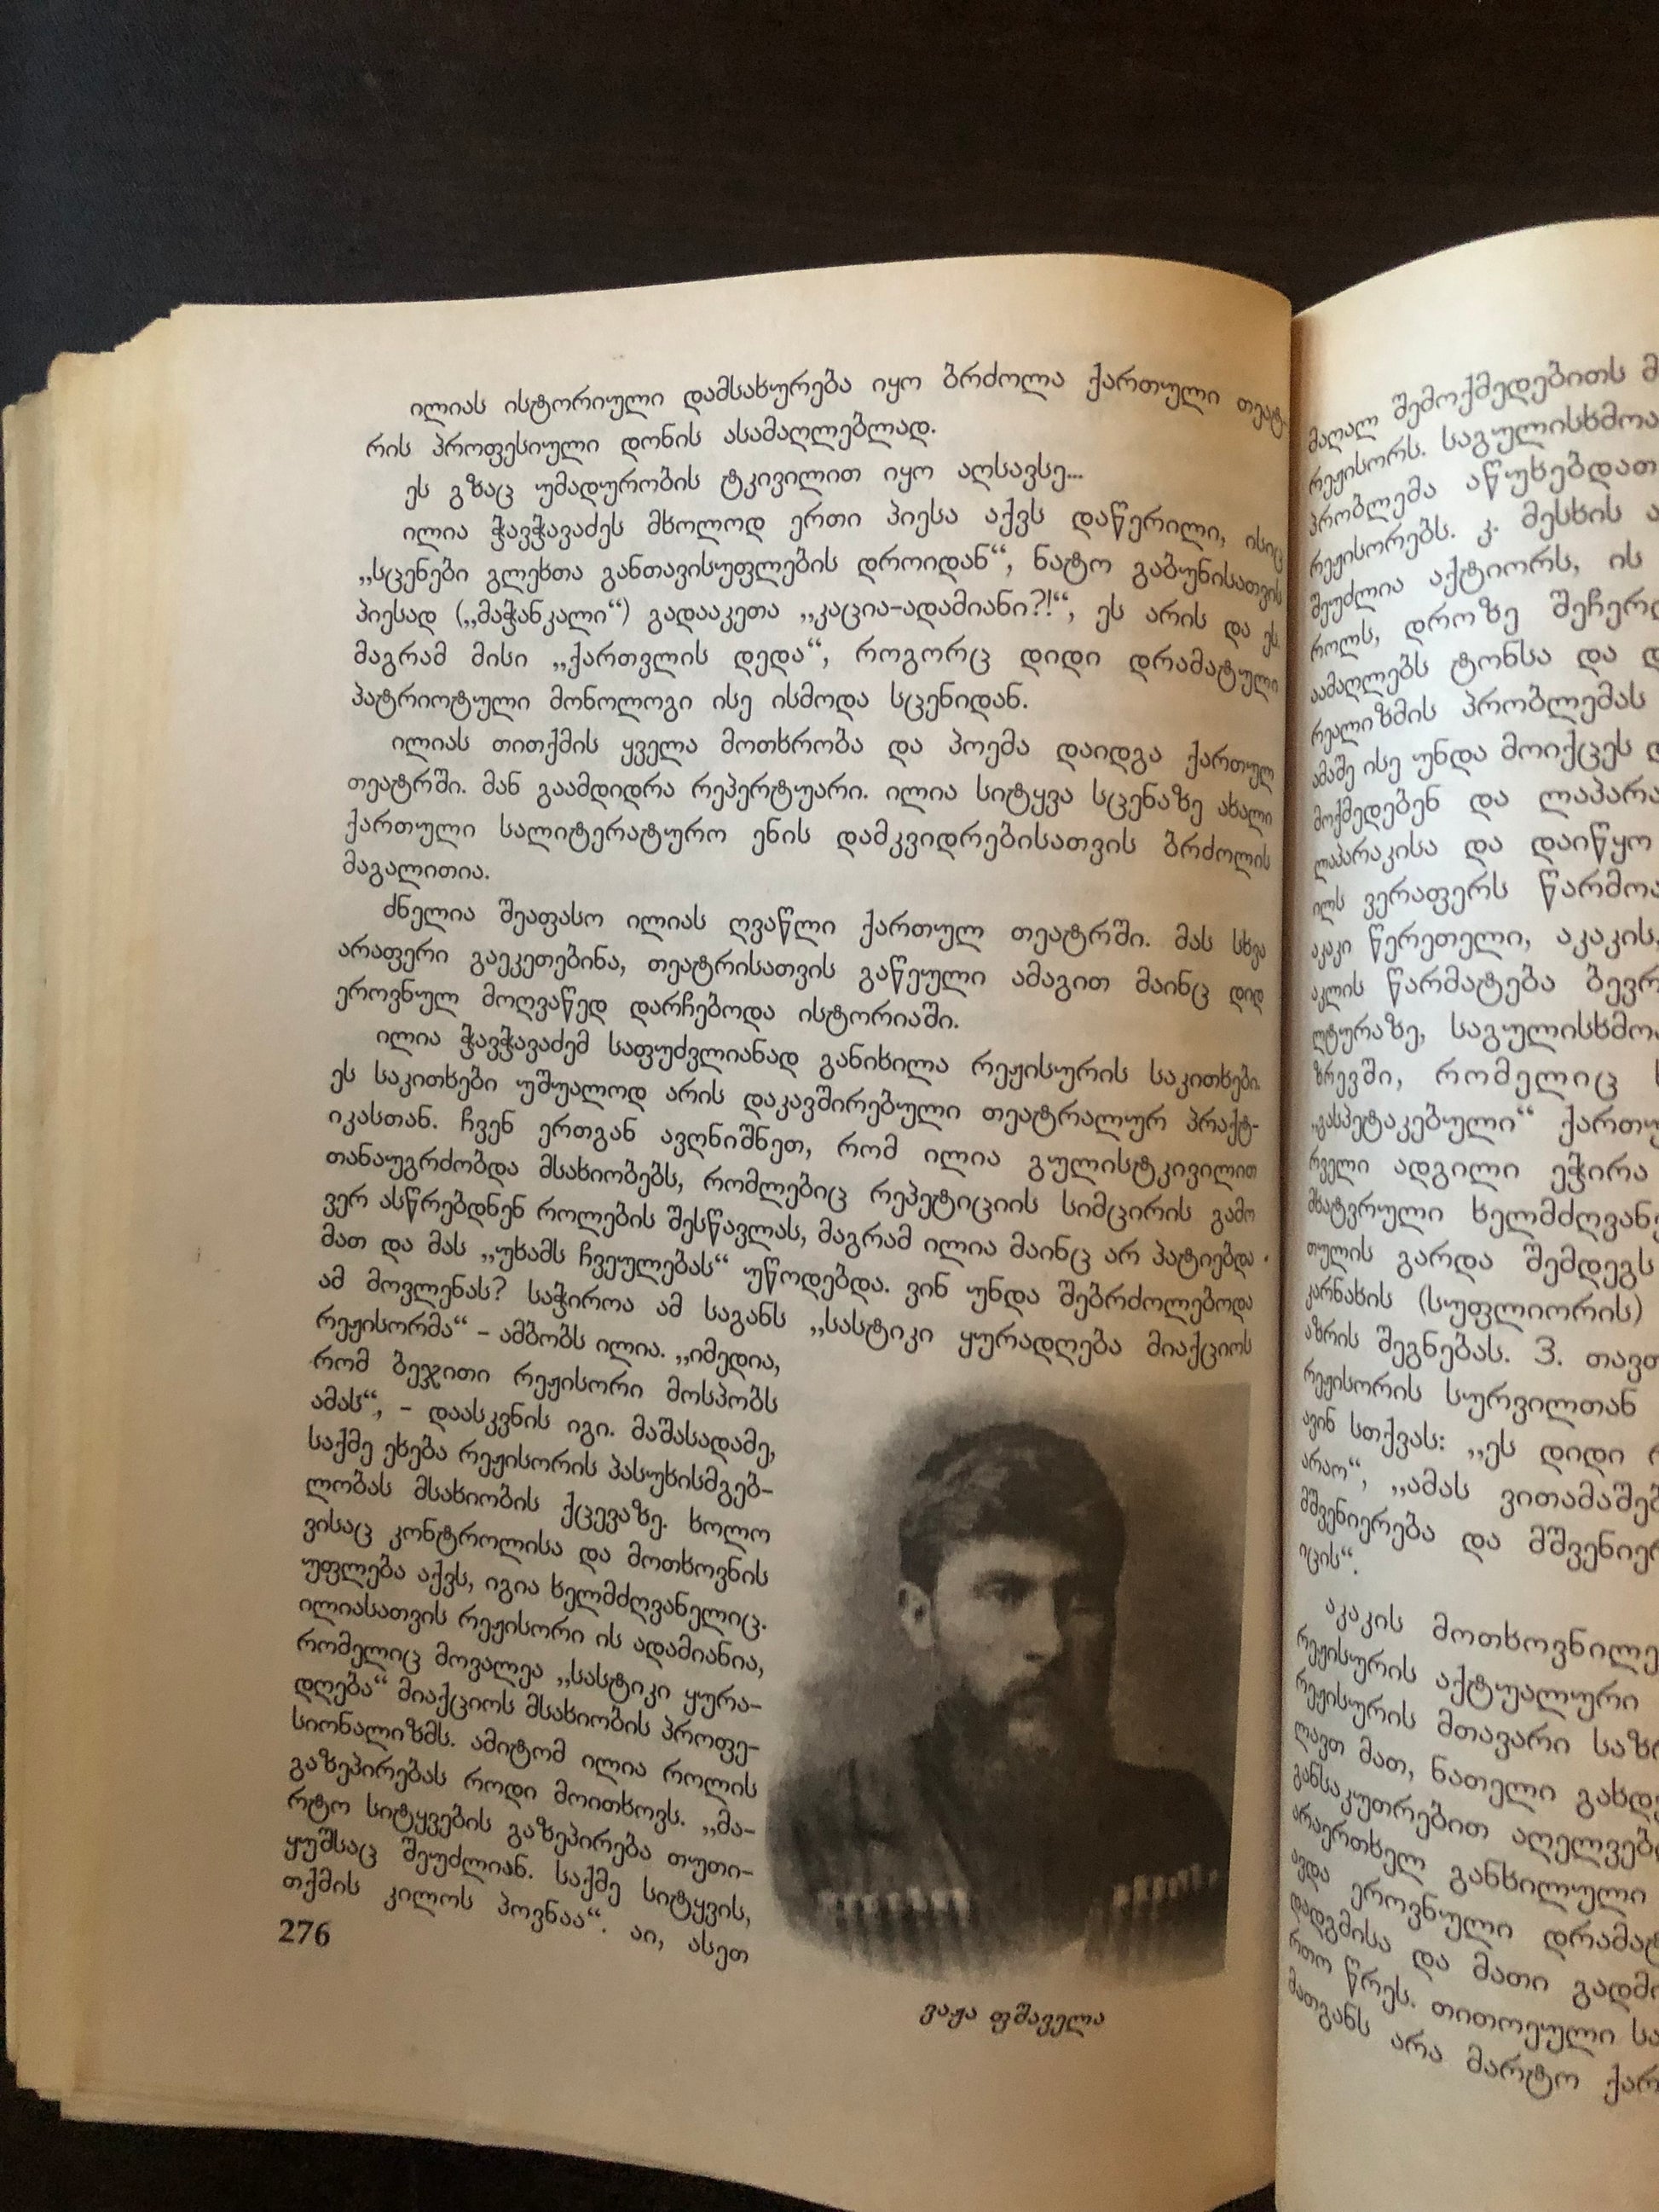 ილიას ისტორიული დამსახურება იყო ბრძოლა ქართული თეატ-
რის პროფესიული დონის ასამაღლებლად.
ეს გზაც უმადურობის ტკივილით იყო აღსავსე...
ილია ჭავჭავაძეს მხოლოდ ერთი პიესა აქვს დაწერილი, ისიც
„სცენები გლეხთა განთავისუფლების დროიდან“, ნატო გაბუნისათვის
პიესად („მაჭანკალი“) გადააკეთა „კაცია-ადამიანი?!“, ეს არის და ეს.
მაგრამ მისი „ქართვლის დედა“, როგორც დიდი დრამატული
პატრიოტული მონოლოგი ისე ისმოდა სცენიდან.
ილიას თითქმის ყველა მოთხრობა და პოემა დაიდგა ქართულ
თეატრში. მან გაამდიდრა რეპერტუარი. ილია სიტყვა სცენაზე ახალი
ქართული სალიტერატურო ენის დამკვიდრებისათვის ბრძოლის
მაგალითია.
ძნელია შეაფასო ილიას ღვაწლი ქართულ თეატრში. მას სხვა
არაფერი გაეკეთებინა, თეატრისათვის გაწეული ამაგით მაინც დიდ
ეროვნულ მოღვაწედ დარჩებოდა ისტორიაში.
ილია ჭავჭავაძემ საფუძვლიანად განიხილა რეჟისურის საკითხები.
ეს საკითხები უშუალოდ არის დაკავშირებული თეატრალურ პრაქტ-
იკასთან. ჩვენ ერთგან ავღნიშნეთ, რომ ილია გულისტკივილით
თანაუგრძობდა მსახიობებს, რომლებიც რეპეტიციის სიმცირის გამო
ვერ ასწრებდნენ როლების შესწავლას, მაგრამ ილია მაინც არ პატიებდა
მათ და მას „უხამს ჩვეულებას“ უწოდებდა. ვინ უნდა შებრძოლებოდა
ამ მოვლენას? საჭიროა ამ საგანს „სასტიკი ყურადღება მიაქციოს
რეჟისორმა“ – ამბობს ილია. „იმედია,
რომ ბეჯითი რეჟისორი მოსპობს
ამას“, – დაასკვნის იგი. მაშასადამე,
საქმე ეხება რეჟისორის პასუხისმგებ-
ლობას მსახიობის ქცევაზე. ხოლო
ვისაც კონტროლისა და მოთხოვნის
უფლება აქვს, იგია ხელმძღვანელიც.
ილიასათვის რეჟისორი ის ადამიანია,
რომელიც მოვალეა „სასტიკი ყურა-
დღება“ მიაქციოს მსახიობის პროფე-
სიონალიზმს. ამიტომ ილია როლის
გაზეპირებას როდი მოითხოვს. „მა-
რტო სიტყვების გაზეპირება თუთი-
ყუშსაც შეუძლიან. საქმე სიტყვის,
თქმის კილოს პოვნაა“. აი, ასეთ
276
ვაჟა ფშაველა
მაღალ შემოქმედებითს
რეჟისორს. საგულისხმოა
პრობლემა აწუხებდათ
რეჟისორებს. კ. მესხის
შეუძლია აქტიორს, ის
როლს, დროზე
აამაღლებს ტონსა და
რეალიზმის პრობლემას
ამაშე ისე უნდა მოიქცეს
მოქმედებენ და
ლაპარაკისა და დაიწყო
ილს ვერაფერს
აკაკი წერეთელი, აკაკის,
აკლის წარმატება
ლტურაზე,
ზრევში, რომელიც
„გასპეტაკებული“
რველი ადგილი ეჭირა
მხატვრული
თულის გარდა შემდეგს
კარნახის (სუფლიორის)
აზრის შეგნებას. 3.
რეჟისორის სურვილთან
ავინ სთქვას: „ეს დიდი
არაო“, „ამას
მშვენიერება და
იცის“.
აკაკის
რეჟისურის აქტუალური
რეჟისურის მთავარი
ლავთ მათ, ნათელი
განსაკუთრებით
არაერთხელ განხილული
ავდა ეროვნული
დადგმისა და მათი
რთო წრეს. თითოეული
მათგანს არა მარტო